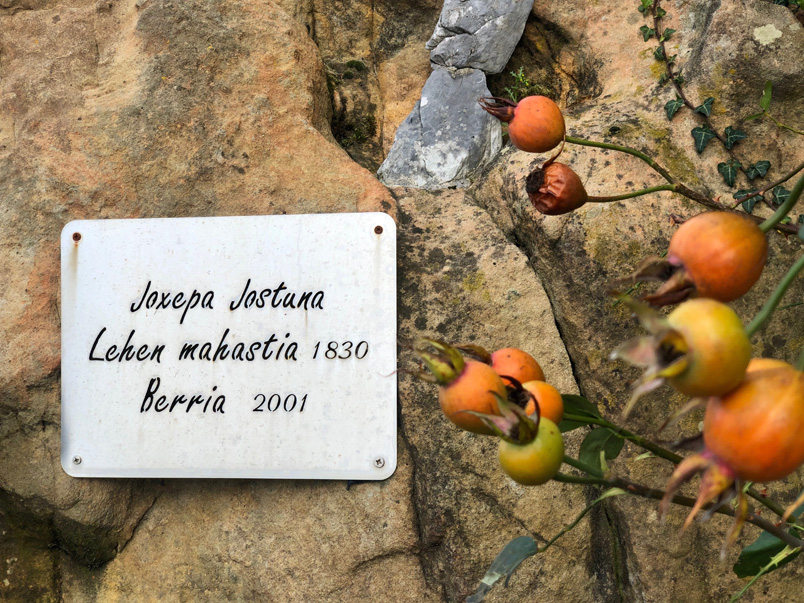 Joxepa Jostuna
Lehen mahastia 1830
Berria 2001